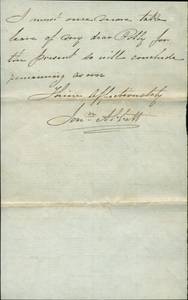 I must once more take
leave of my dear Polly for
the present so will conclude
remaining as ever
Thine affectionately
Jon.ⁿ Abbott